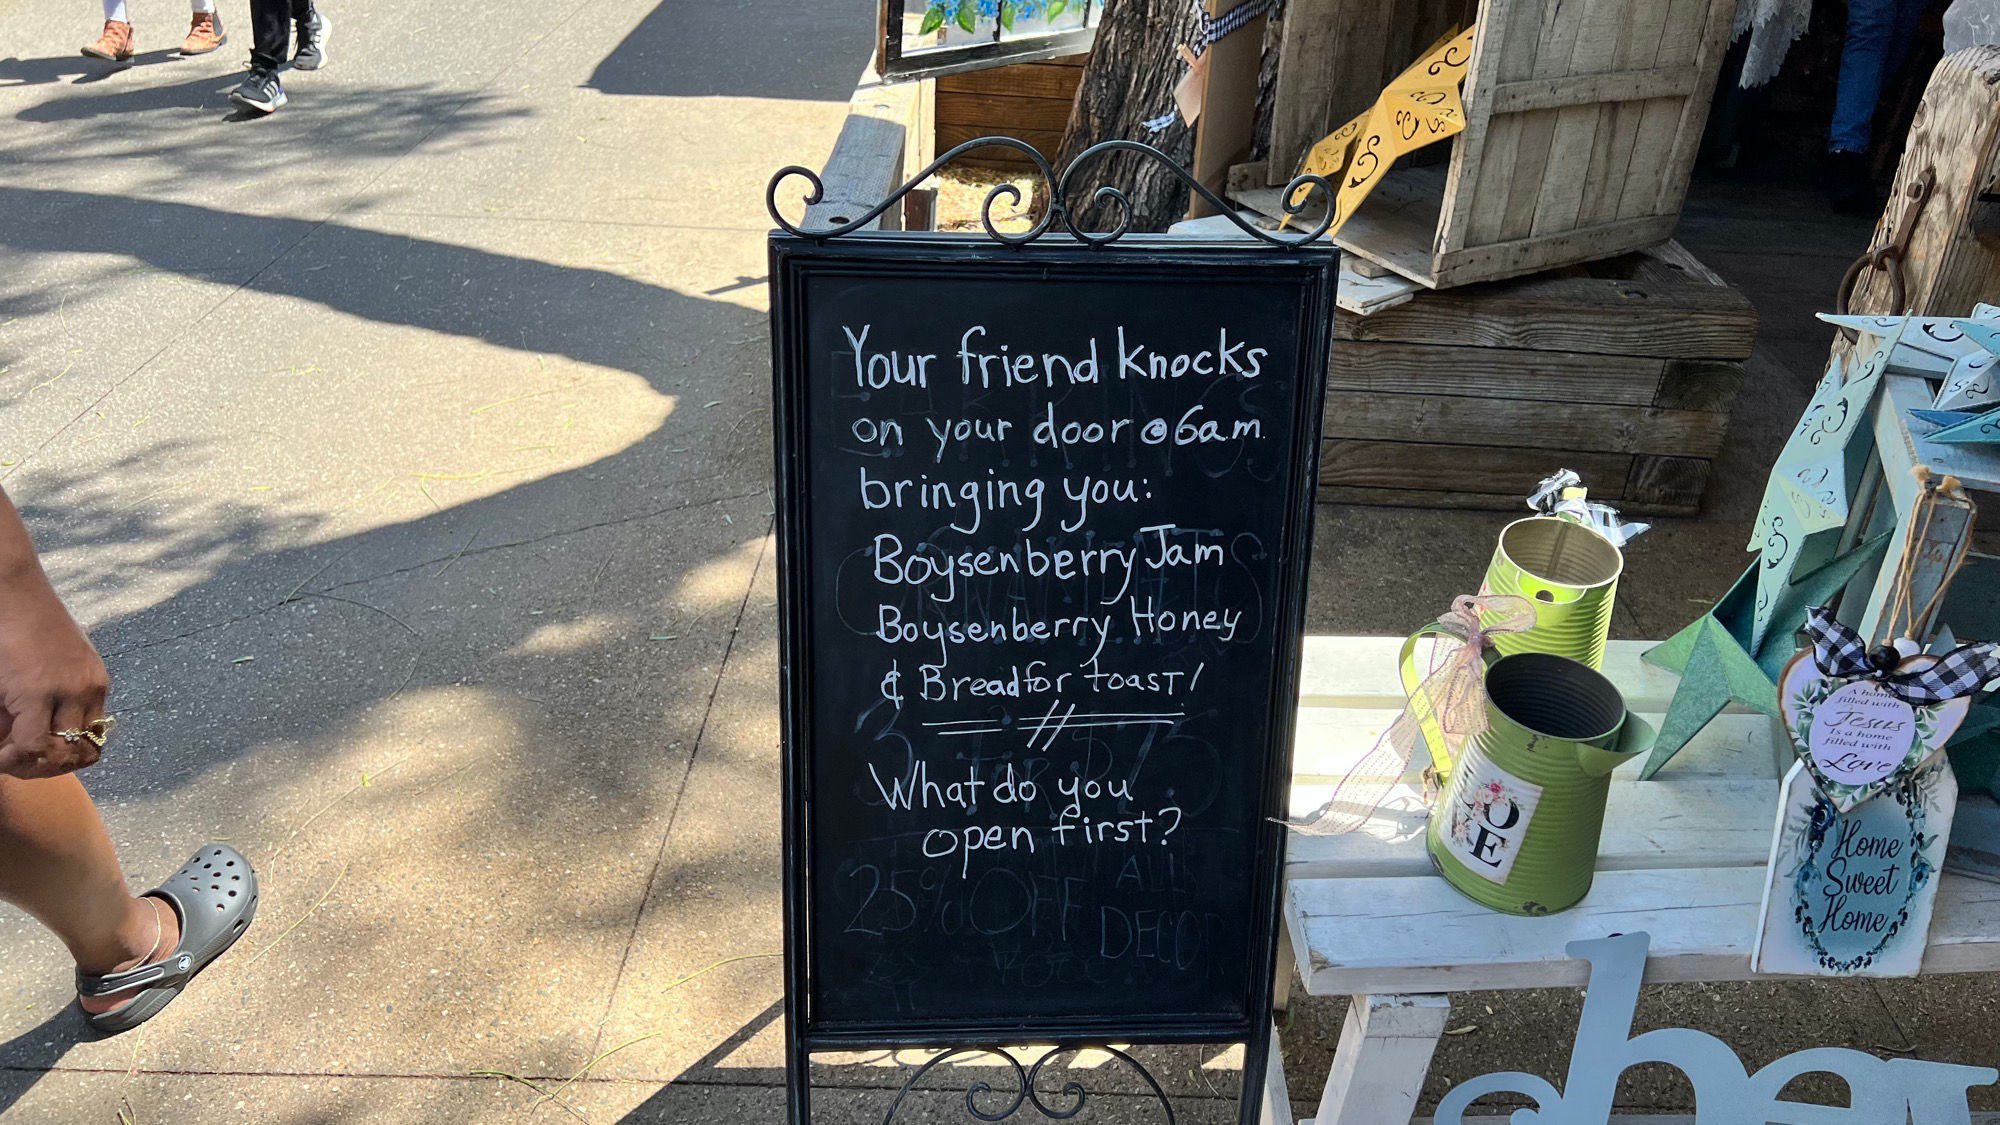 Your friend knocks
on your door @ 6a.m.
bringing you:
Boysenberry Jam
Boysenberry Honey
& Bread for toast!
What do you
open first?
3 FOR $75
25% OFF ALL
DECOR
A home
filled with
Jesus
Is a home
filled with
Love
Home
Sweet
Home